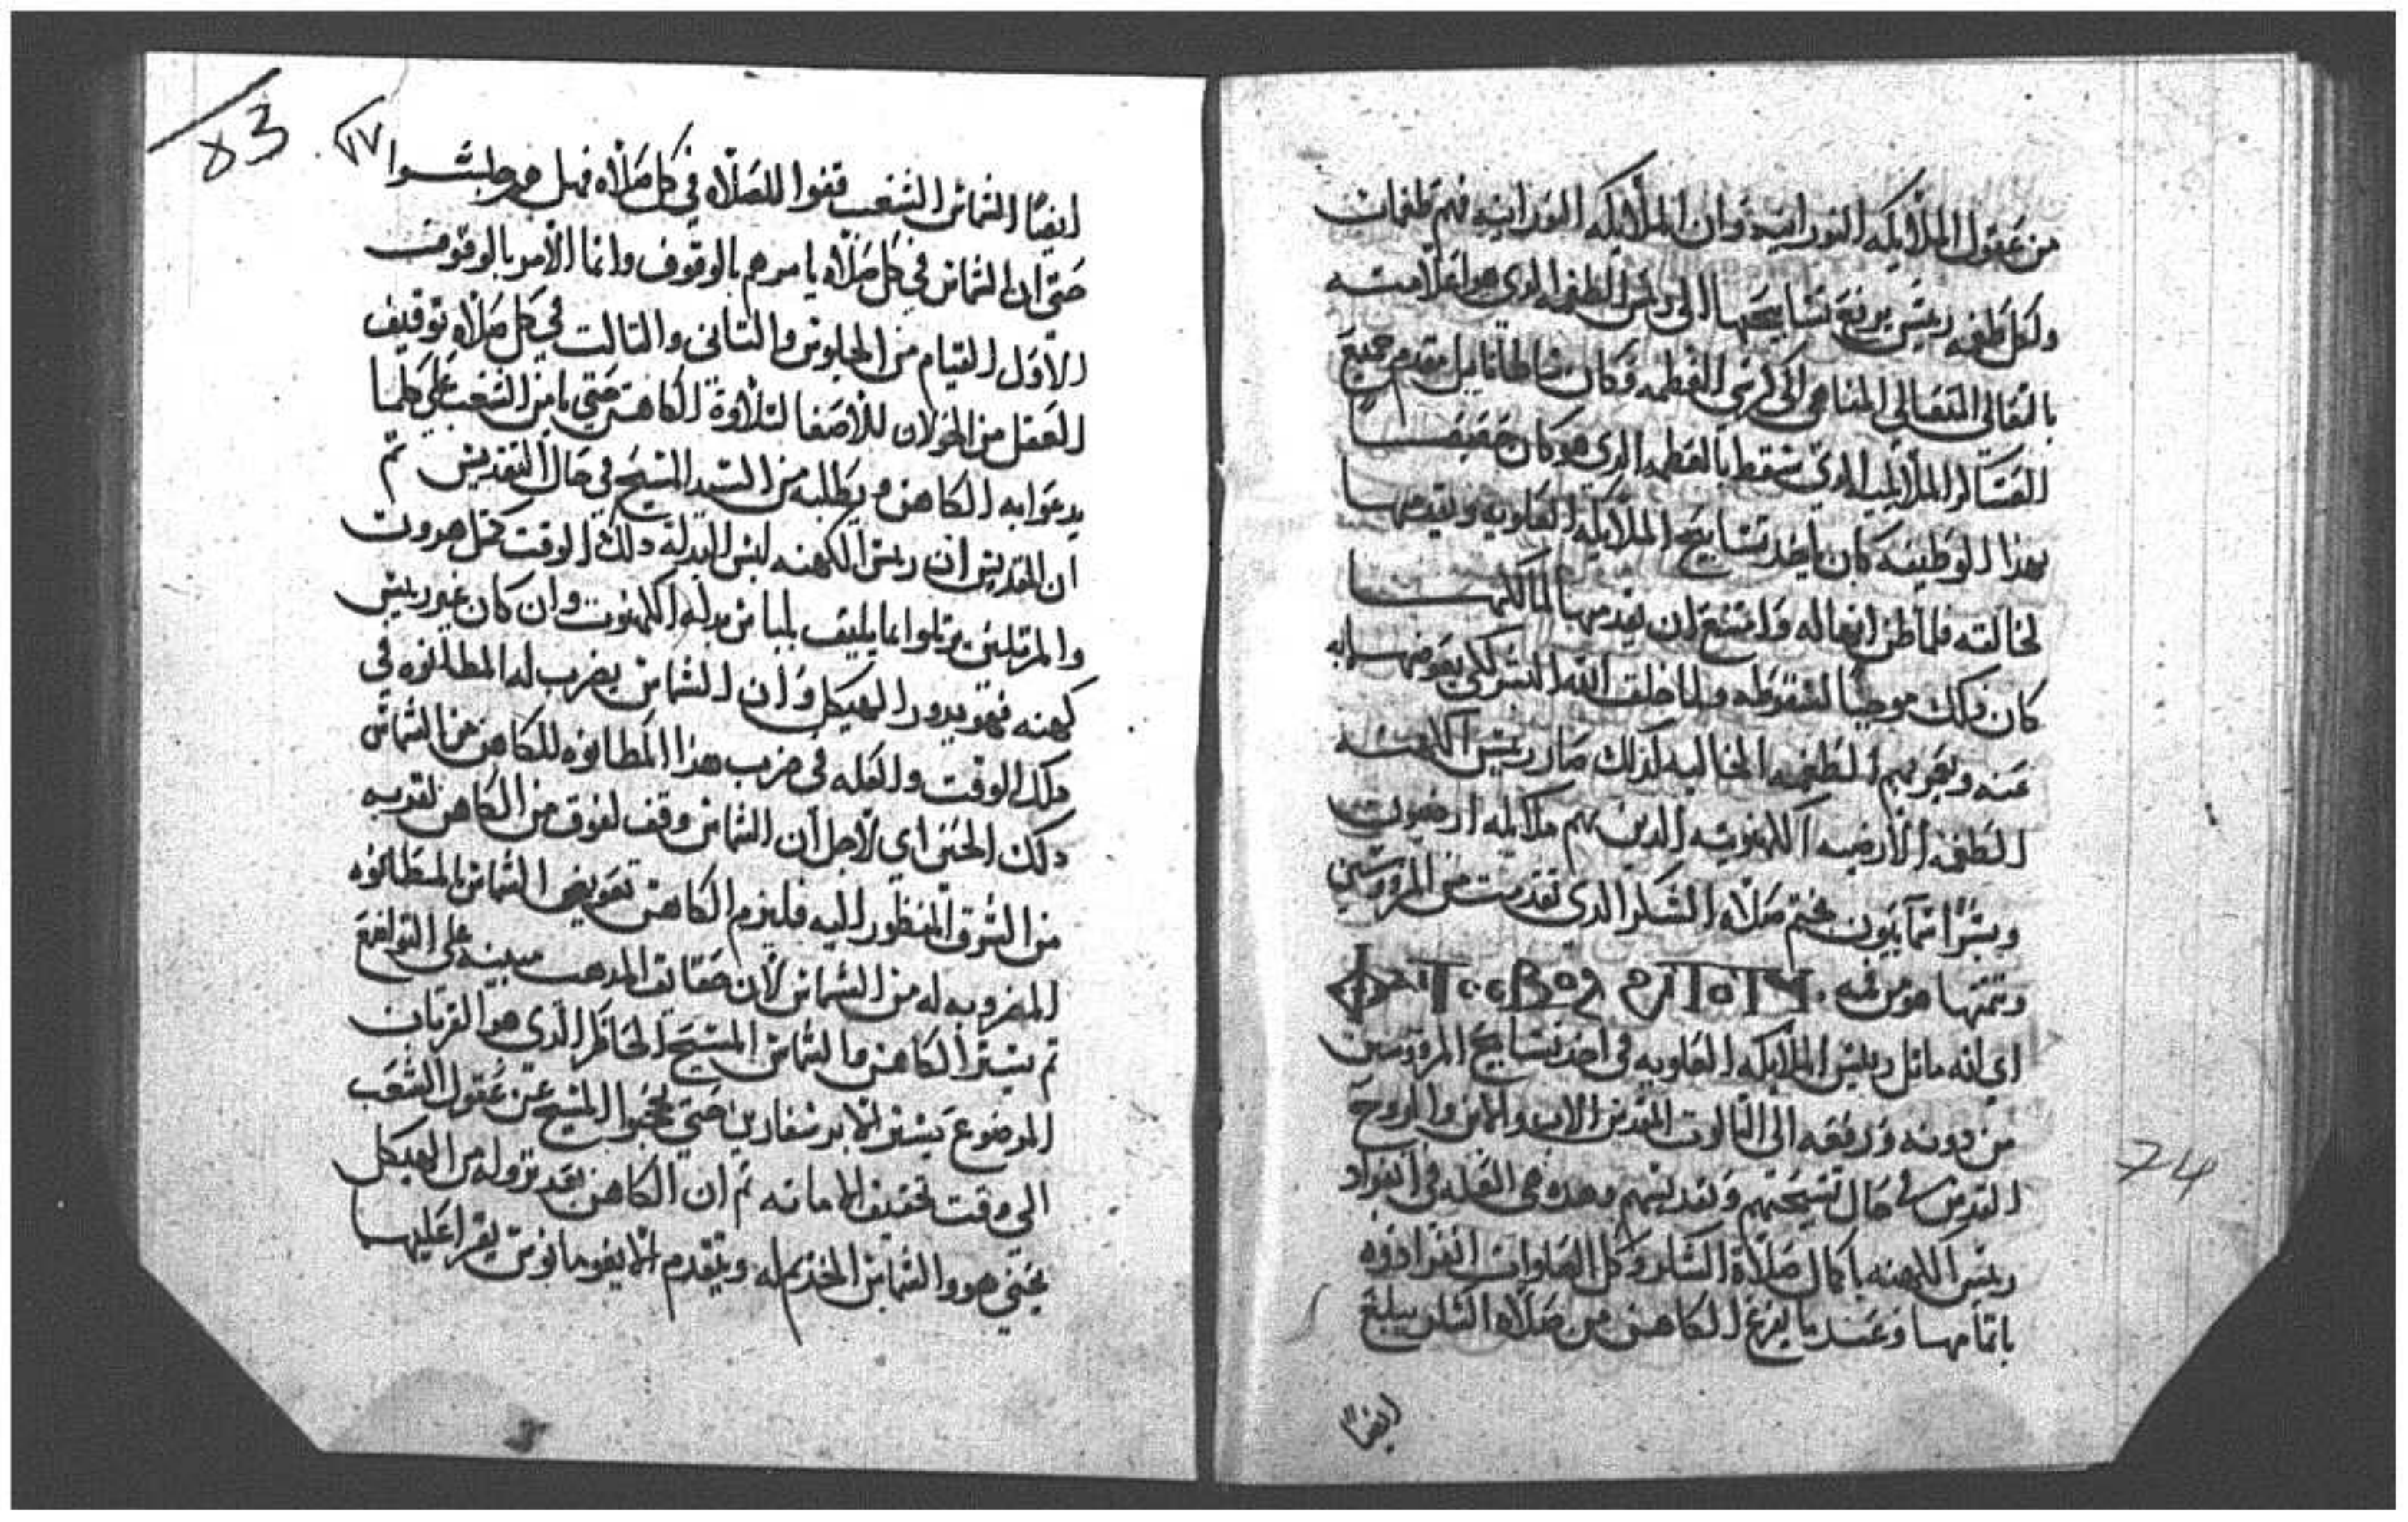 من عقول الملايكه النورانيه وان الملايكه النورانيه فهم طغمات
ولكل طغمه رييس يرفع تسابيحها الى رييس الطغمه الدي هو اعلا منه
بالتعالي المتعالي المتناهي الى كرسي العظمه فكان ساطانايل مقدم جميع
العساكر الملايكيه الدي سقط بالعظمه الدي هو كان حقيقـــا
بهدا الوظيفه كان ياخد تسابيح الملايكه العلويه ويقدمهـا
لخالقه فلما ظن انها له وامتنع ان يقدمها لمالكهـــا
كان دلك موجبًا لسقوطه ولما خلق الله البشر لكي يعوضهم به
عنه ويعوض بهم الطغمه المخالفه لدلك صار رييس الكهنه
الطغمه الارضيه الكهنوتيه الدين هم ملايكه ارضيون
وبشرًا سماييون يختم صلاه الشكر الدي تقدمت من المروسين
وتمتها هو من قبله
اي انه ماتل رييس الملايكه العلويه في اخد تسابيح المروسين
من دونه ورفعه الى التالوت المقدس الاب والابن والروح
القدس في حال تسبحتهم وتقديسهم وهده هي العله في انفراد
رييس الكهنه باكمال صلاة الشكر وكل الصلوات انفراده
باتمامها وعند ما يفرغ الكاهن من صلاه الشكر يبلغ
ايضًا
74
83
١٧
ايضًا الشماس الشعب قفوا للصلاه في كل صلاه فهل هم جلســوا
حتى ان الشماس في كل صلاه يامرهم بالوقوف وانما الامر بالوقوف
الاول القيام من الجلوس والتانى والتالت في كل صلاه توقيف
العقل من الجولان للاصغا لتلاوة الكاهن حتي يامن الشعب علي كلما
يدعوا به الكاهن ويطلبه من السيد المسيح في حال التقديس تم
ان المقديس ان رييس الكهنه لبس البدله دلك الوقت كمتل هرون
والمرتلين يرتلوا بما يليق بلباس بدله الكهنوت وان كان غير رييس
كهنه فهو يدور الهيكل وان الشماس يضرب له المطانوه في
دلك الوقت والعله في ضرب هدا المطانوه للكاهن من الشماس
دلك الحين اي لاجل ان الشماس وقف لفوق من الكاهن لقربه
من الشرق المنظور اليه فليزم الكاهن تعويض الشماس بالمطانوه
المضروبه له من الشماس لان حقايق المدهب مبينه على التواضع
تم يستر الكاهن والشماس المسيح الحاظر الدي هو القربان
الموضوع بستر الابرسفارين حتي يحجبوا المسيح عن عقول الشعب
الى وقت تحقيق الامانه تم ان الكاهن بعد نزوله من الهيكل
يجتي هو والشماس الخديم له ويتقدم الايغومانوس يقرا عليهـا